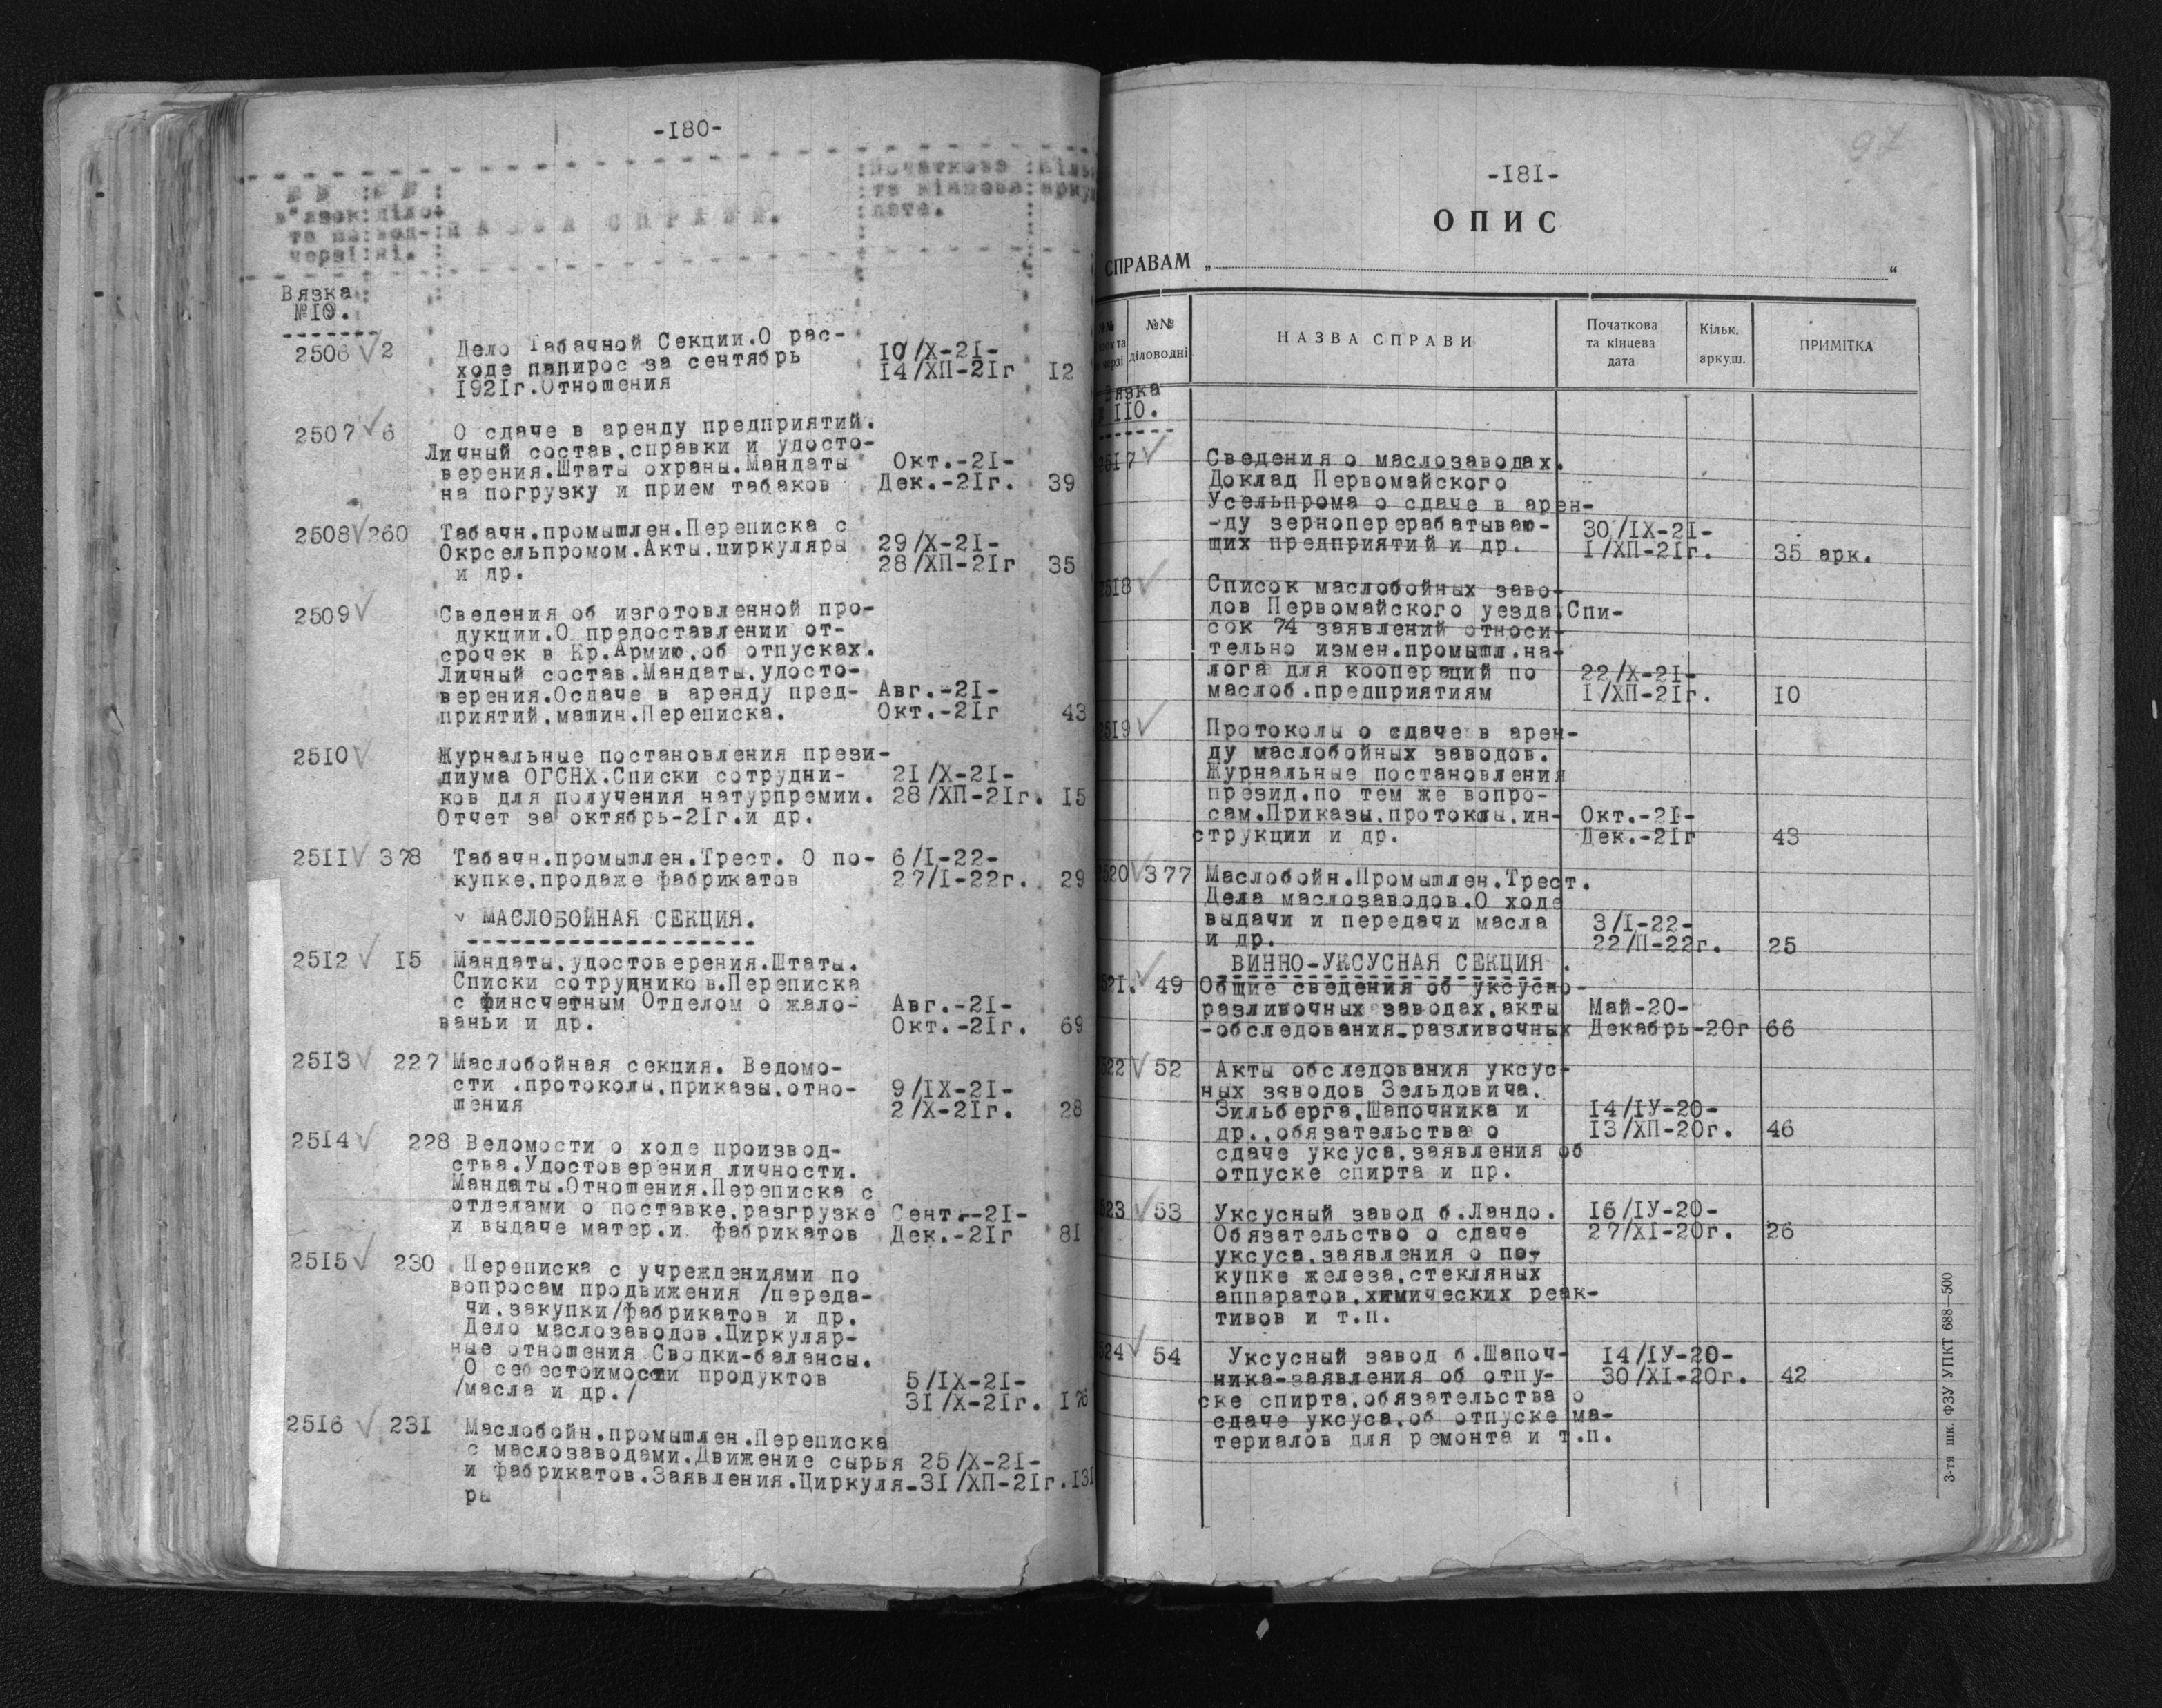 -180-
Початкова
та кінцева
дата.
НАЗВА СПРАВИ.
Вязка
№10.
2506 2 Дело Табачной Секции.О рас-
ходе папирос за сентябрь 10/X-21-
1921г.Отношения 14/ХП-21г 12
2507 6 О сдаче в аренду предприятий.
Личный состав.справки и удосто-
верения.Штаты охраны.Мандаты Окт.-21-
на погрузку и прием табаков Дек.-21г. 39
2508 260 Табачн.промышлен.Переписка с
Окрсельпромом.Акты.циркуляры 29/X-21-
и др. 28/ХП-21г 35
2509 Сведения об изготовленной про-
дукции.О предоставлении от-
срочек в Кр.Армию.об отпусках.
Личный состав.Мандаты.удосто-
верения.Осдаче в аренду пред- Авг.-21-
приятий.машин.Переписка. Окт.-21г 43
2510 Журнальные постановления прези-
диума ОГСНХ.Списки сотрудни- 21/X-21-
ков для получения натурпремии. 28/ХП-21г. 15
Отчет за октябрь-21г.и др.
2511 378 Табачн.промышлен.Трест. О по- 6/I-22-
купке.продаже фабрикатов 27/I-22г. 29
МАСЛОБОЙНАЯ СЕКЦИЯ.
2512 15 Мандаты.удостоверения.Штаты.
Списки сотрудников.Переписка
с финсчетным Отделом о жало- Авг.-21-
ваньи и др. Окт.-21г. 69
2513 227 Маслобойная секция. Ведомо-
сти .протоколы.приказы.отно- 9/IX-21-
шения 2/X-21г. 28
2514 228 Ведомости о ходе производ-
ства.Удостоверения личности.
Мандаты.Отношения.Переписка с
отделами о поставке.разгрузке Сент.-21-
и выдаче матер.и фабрикатов Дек.-21г 81
2515 230 Переписка с учреждениями по
вопросам продвижения /переда-
чи.закупки/фабрикатов и др.
Дело маслозаводов.Циркуляр-
ные отношения Сводки-балансы.
О себестоимости продуктов 5/IX-21-
/масла и др./ 31/X-21г. 176
2516 231 Маслобойн.промышлен.Переписка
с маслозаводами.Движение сырья 25/X-21-
и фабрикатов.Заявления.Циркуля-31/ХП-21г.131
ры
97
-181-
ОПИС
СПРАВАМ „ “
№№ діловодні НАЗВА СПРАВИ Початкова та кінцева дата Кільк. аркуш. ПРИМІТКА
Вязка
110.
2517 Сведения о маслозаводах.
Доклад Первомайского
Усельпрома о сдаче в арен-
-ду зерноперерабатываю- 30/IX-21-
щих предприятий и др. 1/ХП-21г. 35 арк.
2518 Список маслобойных заво-
дов Первомайского уезда.Спи-
сок 74 заявлений относи-
тельно измен.промышл.на-
лога для коопераций по 22/X-21-
маслоб.предприятиям 1/ХП-21г. 10
2519 Протоколы о сдаче в арен-
ду маслобойных заводов.
Журнальные постановления
презид.по тем же вопро-
сам.Приказы.протоколы.ин- Окт.-21-
струкции и др. Дек.-21г 43
2520 377 Маслобойн.Промышлен.Трест.
Дела маслозаводов.О ходе
выдачи и передачи масла 3/I-22-
и др. 22/П-22г. 25
ВИННО-УКСУСНАЯ СЕКЦИЯ.
2521. 49 Общие сведения об уксусно-
разливочных заводах.акты Май-20-
-обследования.разливочных Декабрь-20г 66
2522 52 Акты обследования уксус-
ных заводов Зельдовича.
Зильберга.Шапочника и 14/IУ-20-
др..обязательства о 13/ХП-20г. 46
сдаче уксуса.заявления об
отпуске спирта и пр.
2523 53 Уксусный завод б.Ландо. 16/IУ-20-
Обязательство о сдаче 27/XI-20г. 26
уксуса.заявления о по-
купке железа.стекляных
аппаратов.химических реак-
тивов и т.п.
2524 54 Уксусный завод б.Шапоч- 14/IУ-20-
ника-заявления об отпу- 30/XI-20г. 42
ске спирта.обязательства о
сдаче уксуса.об отпуске ма-
териалов для ремонта и т.п.
3-тя шк. ФЗУ УПКТ 688—500